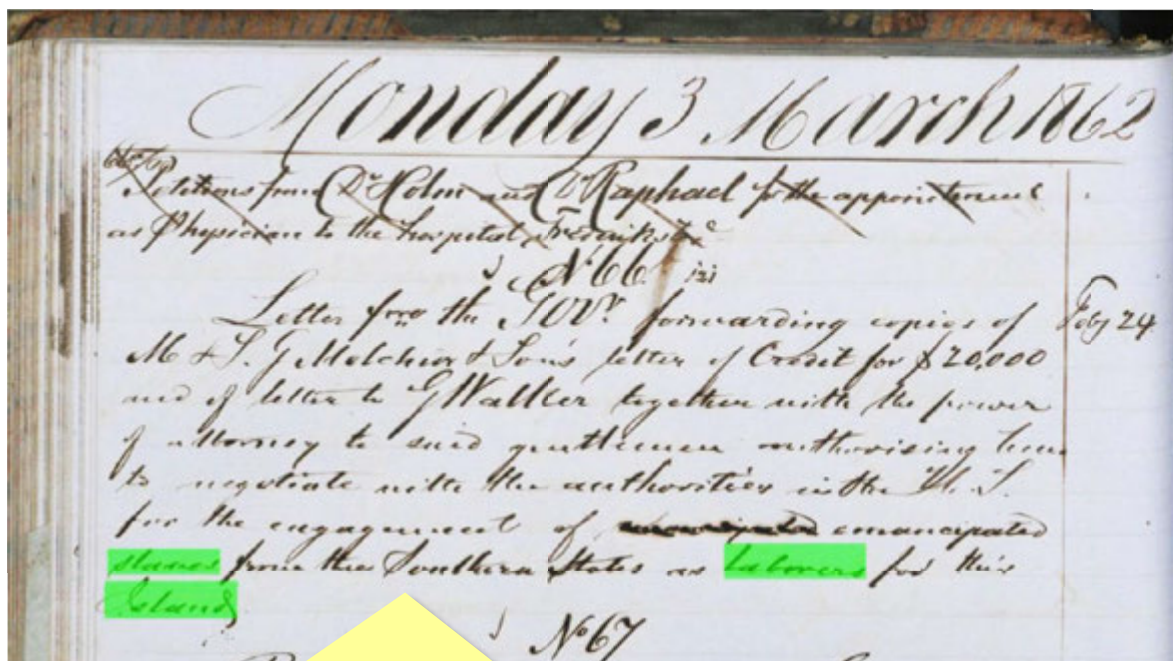 Monday 3 March 1862
Petitions from Dr Holm and Dr Raphael for the appointment
as Physician to the hospital Frederiksted
No 66
Letter from the GOVr. forwarding copies of Feby 24
M & S. G Melchior & Son's letter of Credit for $ 20,000
and of letter to G Walker together with the power
of attorney to said gentlemen authorising him
to negotiate with the authorities in the U. S.
for the engagement of emancipated
slaves from the Southern States as laborers for this
Island
No 67